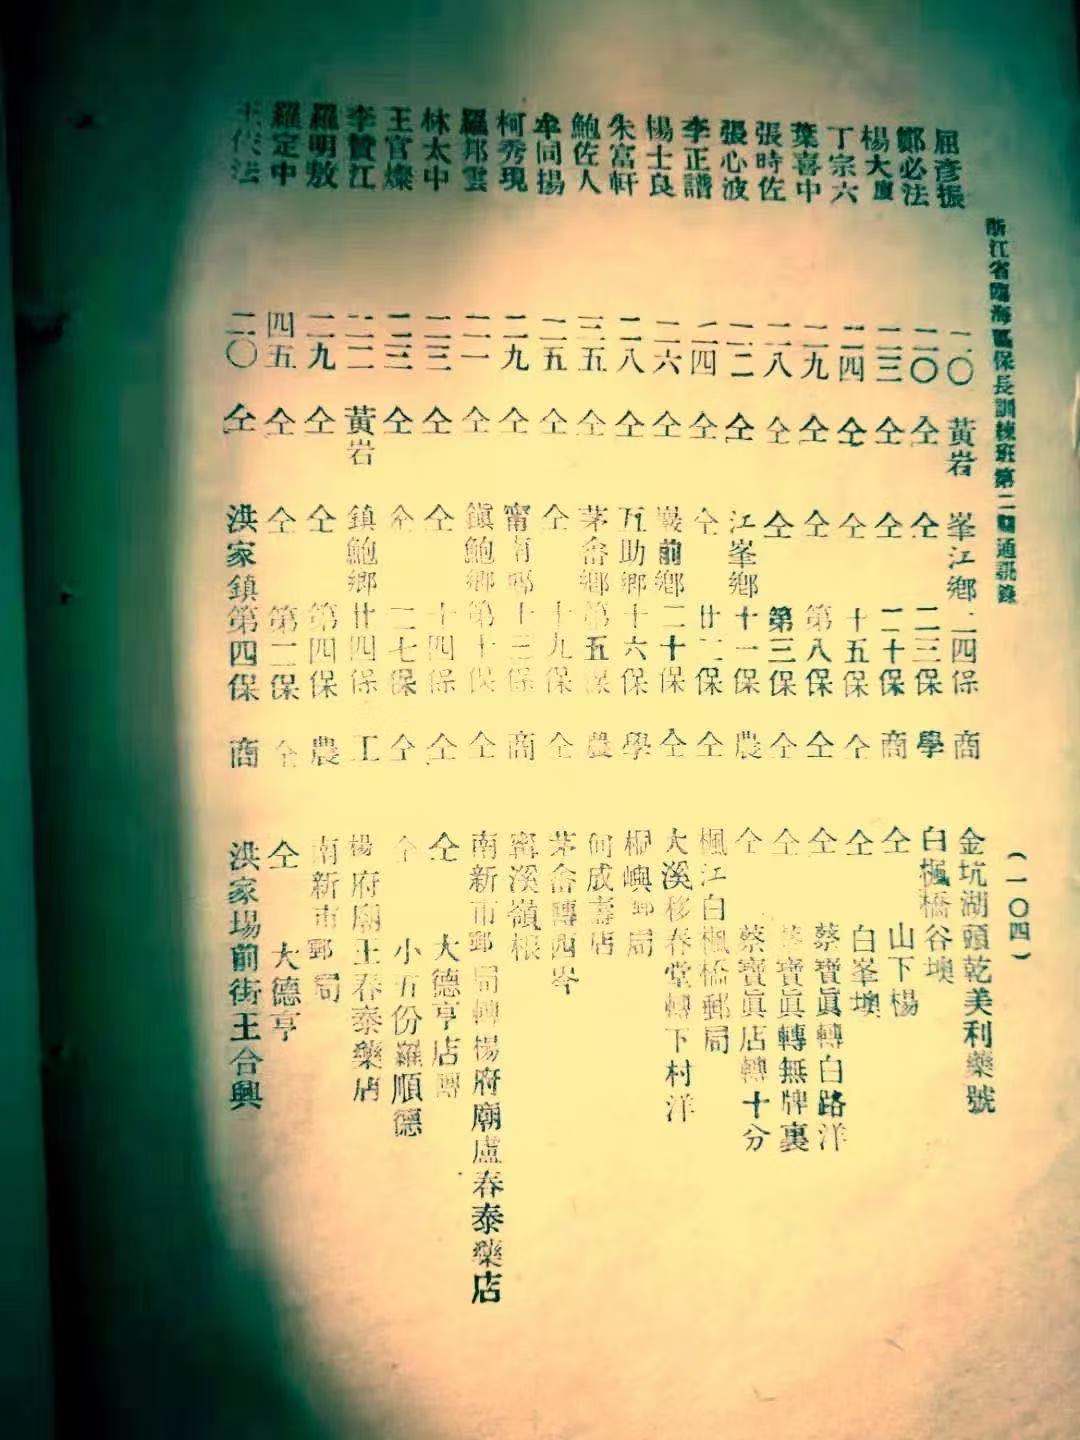 浙江省臨海區保長訓練班第二期通訊錄
(一〇四)
屈彥振 二〇 黃岩 峯江鄉 二四保 商 金坑湖頭乾美利藥號
鄭必法 二〇 仝 仝 二三保 學 白楓橋谷墺
楊大廈 二三 仝 仝 二十保 商 仝 山下楊
丁宗六 二四 仝 仝 十五保 仝 仝 白峯墺
葉喜中 二九 仝 仝 第八保 仝 仝 蔡寶眞轉白路洋
張時佐 二八 仝 仝 第三保 仝 仝 蔡寶眞轉無牌裏
張心波 二二 仝 江峯鄉 十一保 農 仝 蔡寶眞店轉十分
李正譜 二四 仝 仝 廿二保 仝 楓江白楓橋郵局
楊士良 二六 仝 鞍前鄉 二十保 仝 大溪移春堂轉下村洋
朱富軒 二八 仝 互助鄉 十六保 學 桐嶼郵局
鮑佐人 三五 仝 茅畲鄉 第五保 農 何成壽店
牟同揚 二五 仝 仝 十九保 仝 茅畲轉西岑
柯秀現 二九 仝 甯 十三保 商 甯溪嶺根
羅邦雲 二一 仝 鎮鮑鄉 第十保 仝 南新市郵局轉楊府廟盧春泰藥店
林太中 二三 仝 仝 十四保 仝 仝 大德亨店轉
王官燦 三三 仝 仝 二七保 仝 仝 小五份羅順德
李贊江 二二 黃岩 鎮鮑鄉 廿四保 工 楊府廟王春泰藥店
羅明敖 二九 仝 仝 第四保 農 南新市郵局
羅定中 四五 仝 仝 第二保 仝 仝 大德亨
王 法 二〇 仝 洪家鎮 第四保 商 洪家場前街王合興